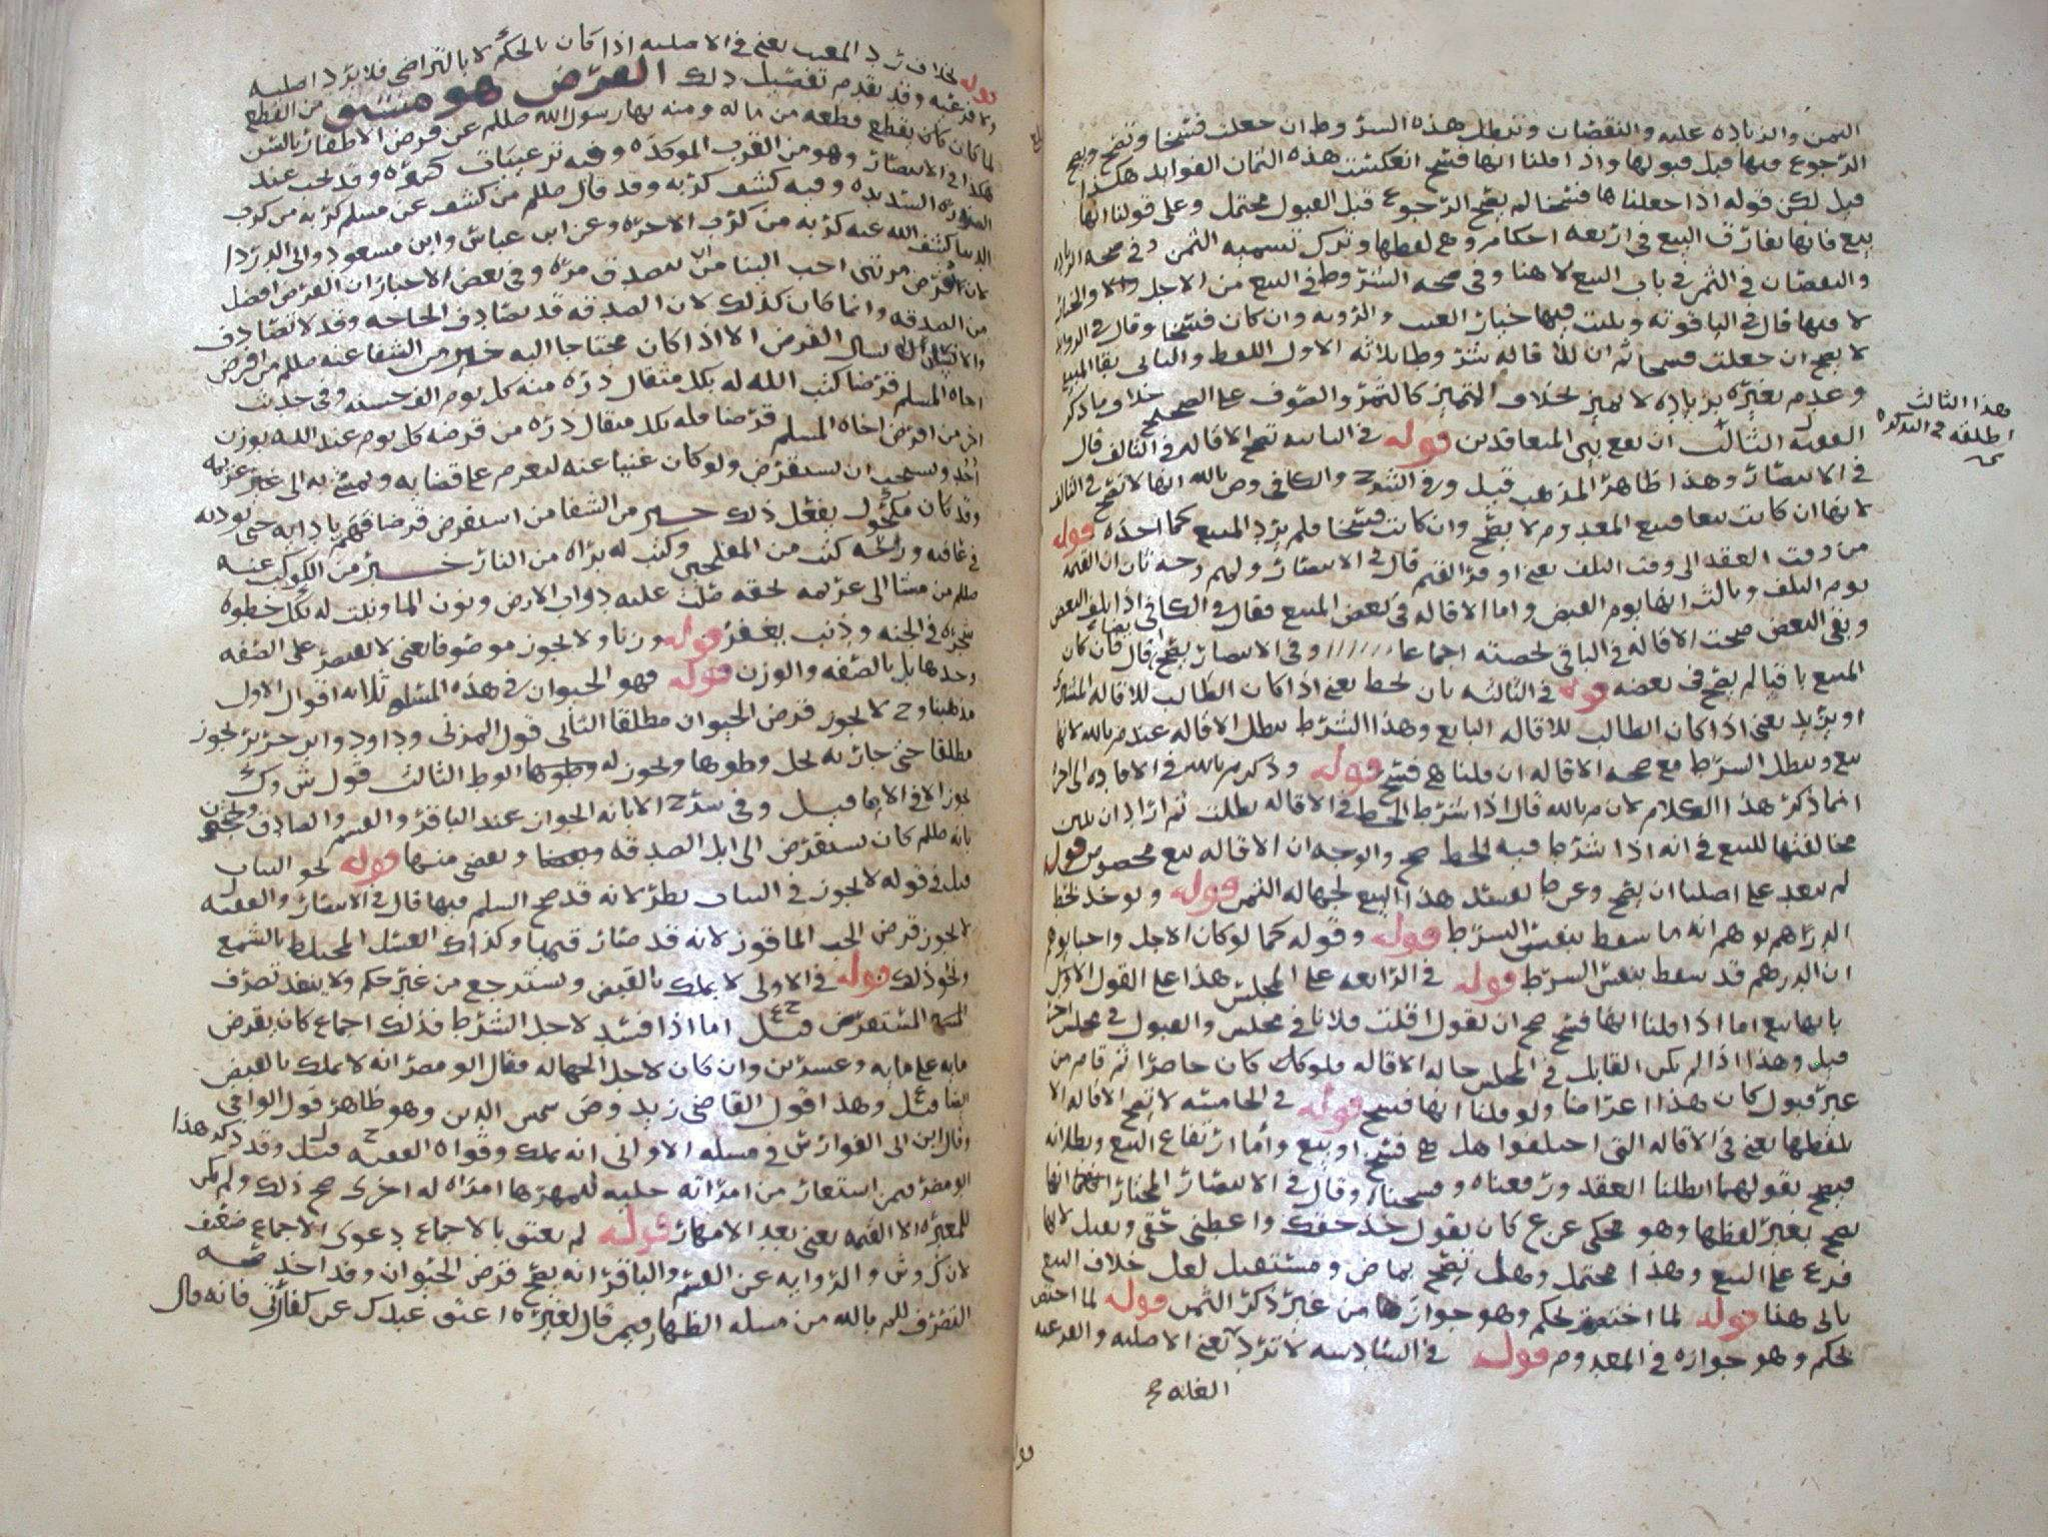 الثمن والزياده عليه والنقصان وتبطل هذه الشروط ان جعلت فسخا وتصح ويصح
الرجوع فيها قبل قبولها واذا قلنا انها فسخ انعكست هذه الثمان الفوايد هكذا
قيل لكن قوله اذا جعلناها فسخا لم يصح الرجوع قبل القبول محتمل وعلى قولنا انها
بيع فانها تفارق البيع في اربعه احكام وهي لفظها وترك تسميه الثمن وفي صحه
والنقصان في الثمن في باب البيع لا هنا وفي صحه الشروط في البيع من الاجل والخيار
لا فيها قال في الياقوته ويثبت فيها خيار العيب والرويه وان كان فسخا وقال في
لا يصح ان جعلت فسخا ثم ان للاقاله شروطا ثلاثه الاول اللفظ والثاني بقا المبيع
وعدم تغيره بزياده لا تميز بخلاف التميز كالثمر والصوف على الصحيح خلاف ما ذكر
الفقيه ل الثالث ان تقع بين المتعاقدين قوله في الثانيه تصح الاقاله في التالف قال
في الانتصار وهذا ظاهر المذهب قيل وفي الشرح والكافي وص بالله انها لا تصح في التالف
لانها ان كانت بيعا فبيع المعدوم لا يصح وان كانت فسخا فلم يرد المبيع كما اخذه قوله
من وقت العقد الى وقت التلف يعني اوفر القيم قال في الانتصار ولهم وجه ثان ان القيمه
يوم التلف وثالث انها يوم القبض واما الاقاله في بعض المبيع فقال في الكافي اذا تلف البعض
وبقي البعض صحت الاقاله في الباقي بحصته اجماعا وفي الانتصار يصح قال فان كان
المبيع باقيا لم يصح في بعضه قوله في الثالثه بان يحط يعني اذا كان الطالب للاقاله المشتري
او يزيد يعني اذا كان الطالب للاقاله البايع وهذا الشرط يبطل الاقاله عند م بالله لانها
بيع ويبطل الشرط مع صحه الاقاله ان قلنا هي فسخ قوله وذكر م بالله في الافاده الى اخره
انما ذكر هذا الكلام لان م بالله قال اذا شرط الحط في الاقاله بطلت ثم اراد ان يبين
مخالفتها للبيع في انه اذا شرط فيه الحط صح والوجه ان الاقاله بيع مخصوص قوله
لم يبعد على اصلنا ان يصح وعن ط يفسد هذا البيع لجهاله الثمن قوله ولو حذ لحط
الدراهم يوهم انه ما سقط بنفس الشرط قوله وقوله كما لو كان الاجل واجبا يوهم
ان الدرهم قد سقط بنفس الشرط قوله في الرابعه على المجلس هذا على القول الاول
بانها بيع اما اذا قلنا انها فسخ صح ان يقول اقلت فلانا في مجلس والقبول في مجلس اخر
قيل وهذا اذا لم يكن القابل في المجلس حاله الاقاله فلو كان كان حاضرا ثم قام من
غير قبول كان هذا اعراضا ولو قلنا انها فسخ قوله في الخامسه لا تصح الاقاله الا
بلفظها يعني في الاقاله التي اختلفوا هل هي فسخ او بيع واما ارتفاع البيع وبطلانه
فيصح بقولهما ابطلنا العقد ورفعناه وفسخناه وقال في الانتصار المختار انها
تصح بغير لفظها وهو محكي عن ع كان يقول خذ حقك واعطني حقي ويقبل لانها
فرع على البيع وهذا محتمل وهل تصح بماض ومستقبل لعل خلاف البيع
ياتي هنا قوله لما اختصت بحكم وهو جوازها من غير ذكر الثمن قوله لما اختص
بحكم وهو جوازه في المعدوم قوله في السادسه لا ترد يعني الاصليه والفرعيه
الغله صح
وهذا الثالث
اطلقه في التذكره
قوله بخلاف رد المعيب يعني في الاصليه اذا كان بالحكم لا بالتراضي فلا يرد اصليه
ولا فرعيه وقد تقدم تفصيل ذلك القرض هو مشتق من القطع
لما كان كان يقطع قطعه من ماله ومنه نهى رسول الله صللم عن قرض الاظفار بالسن
هكذا في الانتصار وهو من القرب الموكده وفيه ترغيبات كثيره وقد يجب عند
الضروره الشديده وفيه كشف كربه وقد قال صللم من كشف عن مسلم كربه من كرب
الدنيا كشف الله عنه كربه من كرب الاخره وعن ابن عباس وابن مسعود وابي الدردا
لان اقرض مرتين احب الينا من ان نتصدق مره وفي بعض الاخبار ان القرض افضل
من الصدقه وانما كان كذلك لان الصدقه قد تصادف الحاجه وقد لا تصادف
والانسان لا يسال القرض الا اذا كان محتاجا اليه خبر من الشفا عنه صللم من اقرض
اخاه المسلم قرضا كتب الله له بكل مثقال ذره منه كل يوم الف حسنه وفي حديث
اخر من اقرض اخاه المسلم قرضا فله بكل مثقال ذره من قرضه كل يوم عند الله بوزن
احد ويستحب ان يستقرض ولو كان غنيا عنه ليعزم على قضايه ويمشي به الى غير غريمه
وقد كان مكحول يفعل ذلك خبر من الشفا من استقرض قرضا فهم بادايه حتى يوديه
في عافيه وراحه كتب من المفلحين وكتب له براه من النار خبر من الكوكب عنه
صللم من مشا الى غريمه بحقه صلت عليه دواب الارض ونون الما ونبت له بكل خطوه
شجره في الجنه وذنب يغفر قوله وزنا ولا يجوز موصوفا يعني لا يقتصر على الصفه
وحدها بل بالصفه والوزن قوله فهو الحيوان في هذه المسله ثلاثه اقوال الاول
مذهبنا وح لا يجوز قرض الحيوان مطلقا الثاني قول المزني وداود وابن جرير يجوز
مطلقا حتى جاريه يحل وطوها ويجوز له وطوها الوط الثالث قول ش وك
يجوز الا في الاما قيل وفي شرح الابانه الجواز عند الباقر والقسم والصادق
بانه صللم كان يستقرض الى ابل الصدقه ويقضي منها قوله نحو الثياب
قيل في قوله لا يجوز في الثياب نظر لانه قد صح السلم فيها قال في الانتصار والفقيه
لا يجوز قرض الحب الماقوز لانه قد صار قيميا وكذلك العسل المختلط بالشمع
ونحو ذلك قوله في الاولى لا يملك بالقبض ويسترجع من غير حكم ولا ينفذ تصرف
المستقرض قيل اما اذا فسد لاجل الشرط فذلك اجماع كان يقرض
مايه على مايه وعشرين وان كان لاجل الجهاله فقال ابو مضر انه لا يملك بالقبض
ايضا قيل وهذا قول القاضي زيد وص شمس الدين وهو ظاهر قول الوافي
وقال ابن ابي الفوارس في مسله الاواني انه يملك وقواه الفقيه ل ح قيل وقد ذكر هذا
ابو مضر فيمن استعار من امراته حليه ليمهرها امراه له اخرى صح ذلك ولم يكن
للمعيره الا القيمه يعني بعد الامهار قوله لم يعتق بالاجماع دعوى الاجماع ضعيف
لان ك وش والروايه عن القسم والباقر انه يصح قرض الحيوان وقد اخذ صحه
التصرف للم بالله من مسله الظهار فيمن قال لغيره اعتق عبدك عن كفارتي فانه قال